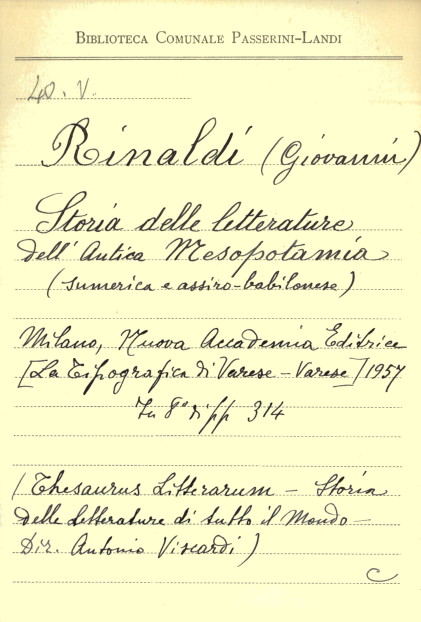 BIBLIOTECA COMUNALE PASSERINI-LANDI
40. V.
Rinaldi (Giovanni)
Storia delle letterature
dell'Antica Mesopotamia
(sumerica e assiro-babilonese)
Milano, Nuova Accademia Editrice
[La Tipografica di Varese - Varese] 1957
In 8° di pp 314
(Thesaurus Litterarum - Storia
delle letterature di tutto il Mondo -
Dir. Antonio Viscardi)
C